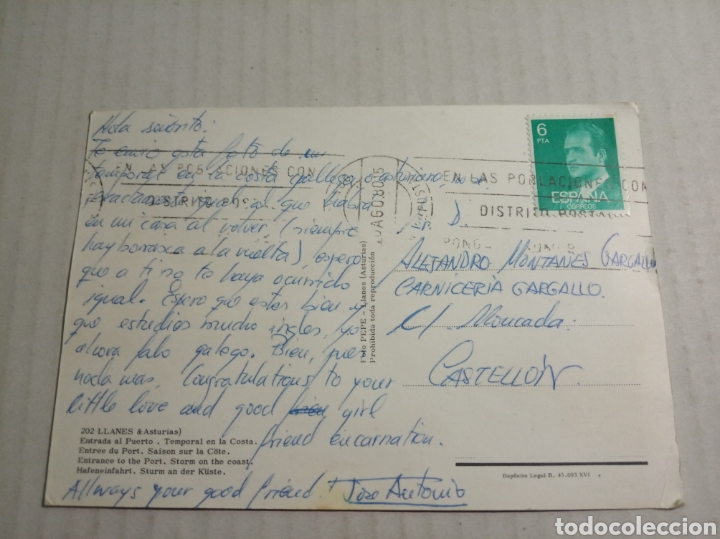 Hola señorito:
Te envio esta foto de un
temporal en la costa gallega o asturiana
exactamente igual al que habia
en mi casa al volver, (siempre
hay borrasca a la vuelta), espero
que a ti no te haya ocurrido
igual. Espero que estes bien y
que estudies mucho ingles, yo
ahora falo galego. Bien, pues
nada mas, Congratulations to your
little love and good girl
friend encarnation.
Allways your good friend Jose Antonio
202 LLANES (Asturias)
Entrada al Puerto . Temporal en la Costa.
Entree du Port. Saison sur la Côte.
Entrance to the Port. Storm on the coast.
Hafeneinfahrt. Sturm an der Küste.
Foto PEPE - Llanes (Asturias)
Prohibido toda reproducción
EN LAS POBLACIONES CON
DISTRITO POSTAL
EN LAS POBLACIONES CON
DISTRITO POSTAL
6
PTA
ESPAÑA
CORREOS
D.
ALEJANDRO MONTAÑES GARGALLO
CARNICERIA GARGALLO.
C/ Moncada.
CASTELLÓN.
Depósito Legal B. 45.093 XVI
todocoleccion